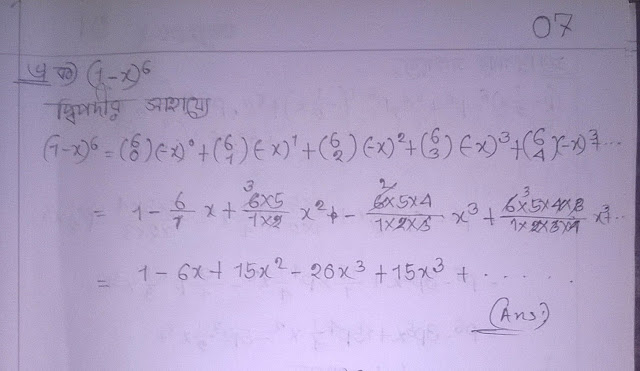 07
(1-x)⁶
দ্বিপদীর সাহায্যে
(1-x)⁶ = (6 0)(-x)⁰ + (6 1)(-x)¹ + (6 2)(-x)² + (6 3)(-x)³ + (6 4)(-x)³ ...
= 1 - 6/1 x + 6×5/1×2 x² - 6×5×4/1×2×3 x³ + 6×5×4×3/1×2×3×4 x³ ..
= 1 - 6x + 15x² - 20x³ + 15x³ + . . . . . .
(Ans:)